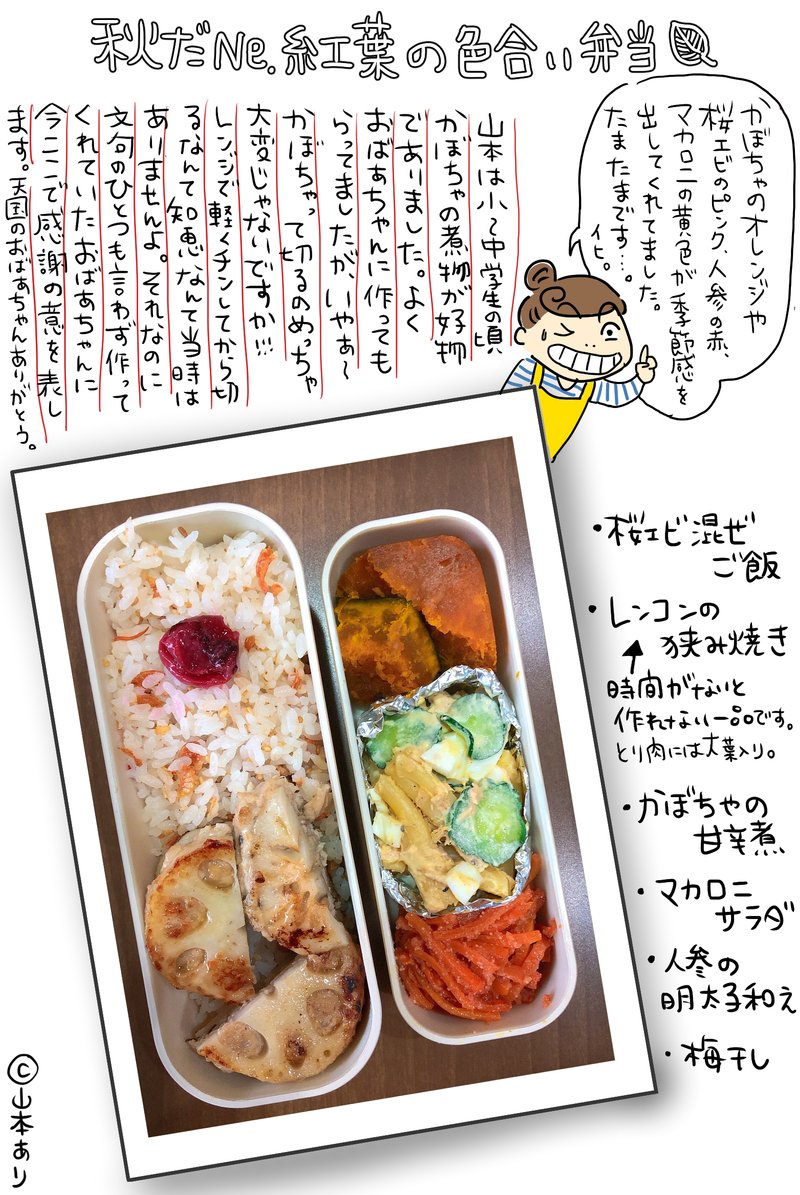 秋だNe.紅葉の色合い弁当
かぼちゃのオレンジや
桜エビのピンク、人参の赤、
マカロニの黄色が季節感を
出してくれてました。
たまたまです…。
イヒ。
山本は小〜中学生の頃
かぼちゃの煮物が好物
でありました。よく
おばあちゃんに作っても
らってましたがいやぁ〜
かぼちゃって切るのめっちゃ
大変じゃないですか!!!
レンジで軽くチンしてから切
るなんて知恵なんて当時は
ありませんよ。それなのに
文句のひとつも言わず作って
くれていたおばあちゃんに
今ここで感謝の意を表し
ます。天国のおばあちゃんありがとう。
・桜エビ混ぜ
ご飯
・レンコンの
挟み焼き
時間がないと
作れない一品です。
とり肉には大葉入り。
・かぼちゃの
甘辛煮
・マカロニ
サラダ
・人参の
明太子和え
・梅干し
©山本あり